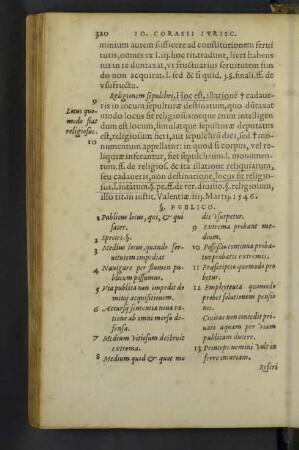 320 IO. CORASII IVRISC.
minium autem sufficere ad constitutionem serui
tutis, omnes ex l. iij. hoc titit. tradunt, licet habens
ius in re duntaxat, vt fructuarius seruitutem fun
do non acquirat. l. sed & si quid. §. finali. ff. de
vsufructu.
9 Religionem sepulchri, Hoc est, illatione † cadaue
Locus quo
modo fiat
religiosus.
10
ris in locum sepulturæ destinatum, quo duntaxat
modo locus fit religiosus: neque enim intelligen
dum est locum, simulatque sepulturæ deputatus
est, religiosum, aut sepulchrum fieri dici, est † mo
numentum appellandum: quin si corpus, vel re
liquiæ inferantur, fiet sepulchrum. l. monumen
tum. ff. de religios. & ita illatione reliquiarum,
seu cadaueris, non destinatione, locus fit religio
sus. l. in tantum. §. ff. de rer. diuisio. §. religiosum,
illo tit. in institut. Valentiæ. iiij. Martij. 1546.
§. PVBLICO.
1 Publicus locus, qui, & qui
sacer.
2 Species §.
3 Medius locus, quando ser
uitutem impediat
4 Nauigare per flumen pu
blicum possumus.
5 Via publica non impedit do
minij acquisitionem.
6 Accursij sententia noua ra
tione ab omni morsu de
fensa.
7 Medium vitiosum destruit
extrema.
8 Medium quid & quot mo
dis vsurpetur.
9 Extrema probant me
dium.
10 Possessio continua proba
tur probatis extremis.
11 Præscriptio quomodo pro
betur.
12 Emphyteuta quomodo
probet solutionem pensio
nis.
Ciuitas non concedit pri
uato aquam per viam
publicam ducere.
13 Princeps nemini vult in
ferre iniuriam.
Rescri